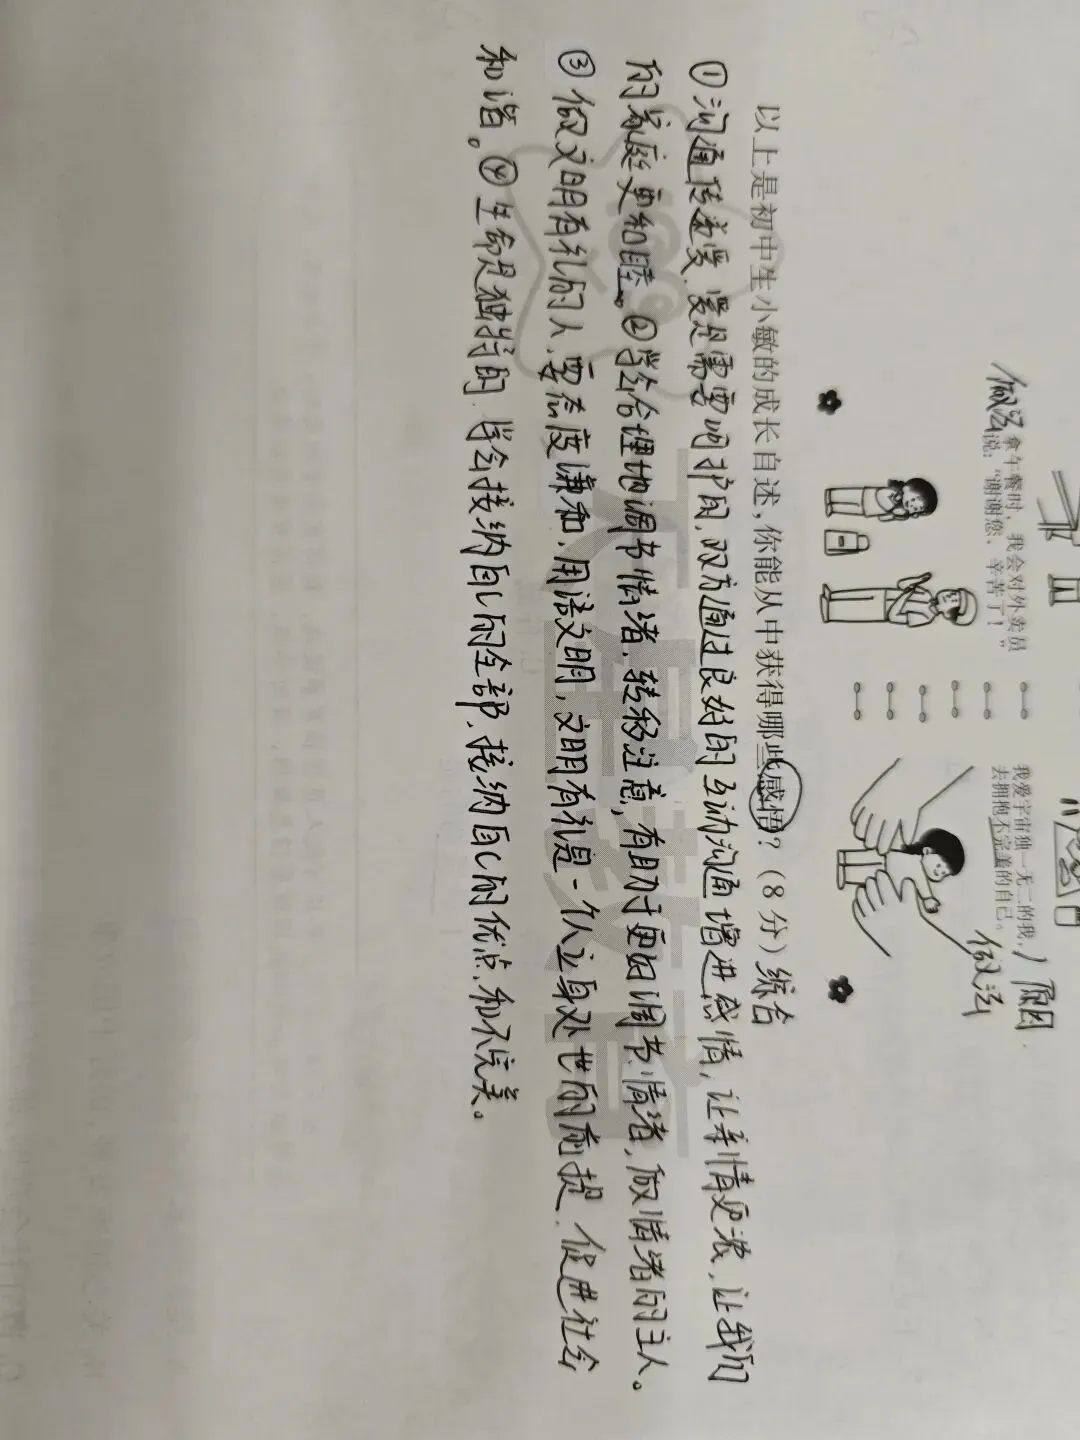 拿午餐时，我会对外卖员
说：“谢谢您，辛苦了！”
做法
我爱宇宙独一无二的我，
去拥抱不完美的自己。
原因
做法
以上是初中生小敏的成长自述，你能从中获得哪些感悟？（8分）综合
①沟通传递爱，爱是需要呵护的，双方通过良好的互动沟通增进感情，让亲情更浓，让我们
的家庭更和睦。②学会合理地调节情绪，转移注意，有助于更好调节情绪，做情绪的主人。
③做文明有礼的人，要态度谦和，用语文明，文明有礼是一个人立身处世的前提，促进社会
和谐。④生命是独特的，学会接纳自己的全部，接纳自己的优点和不完美。